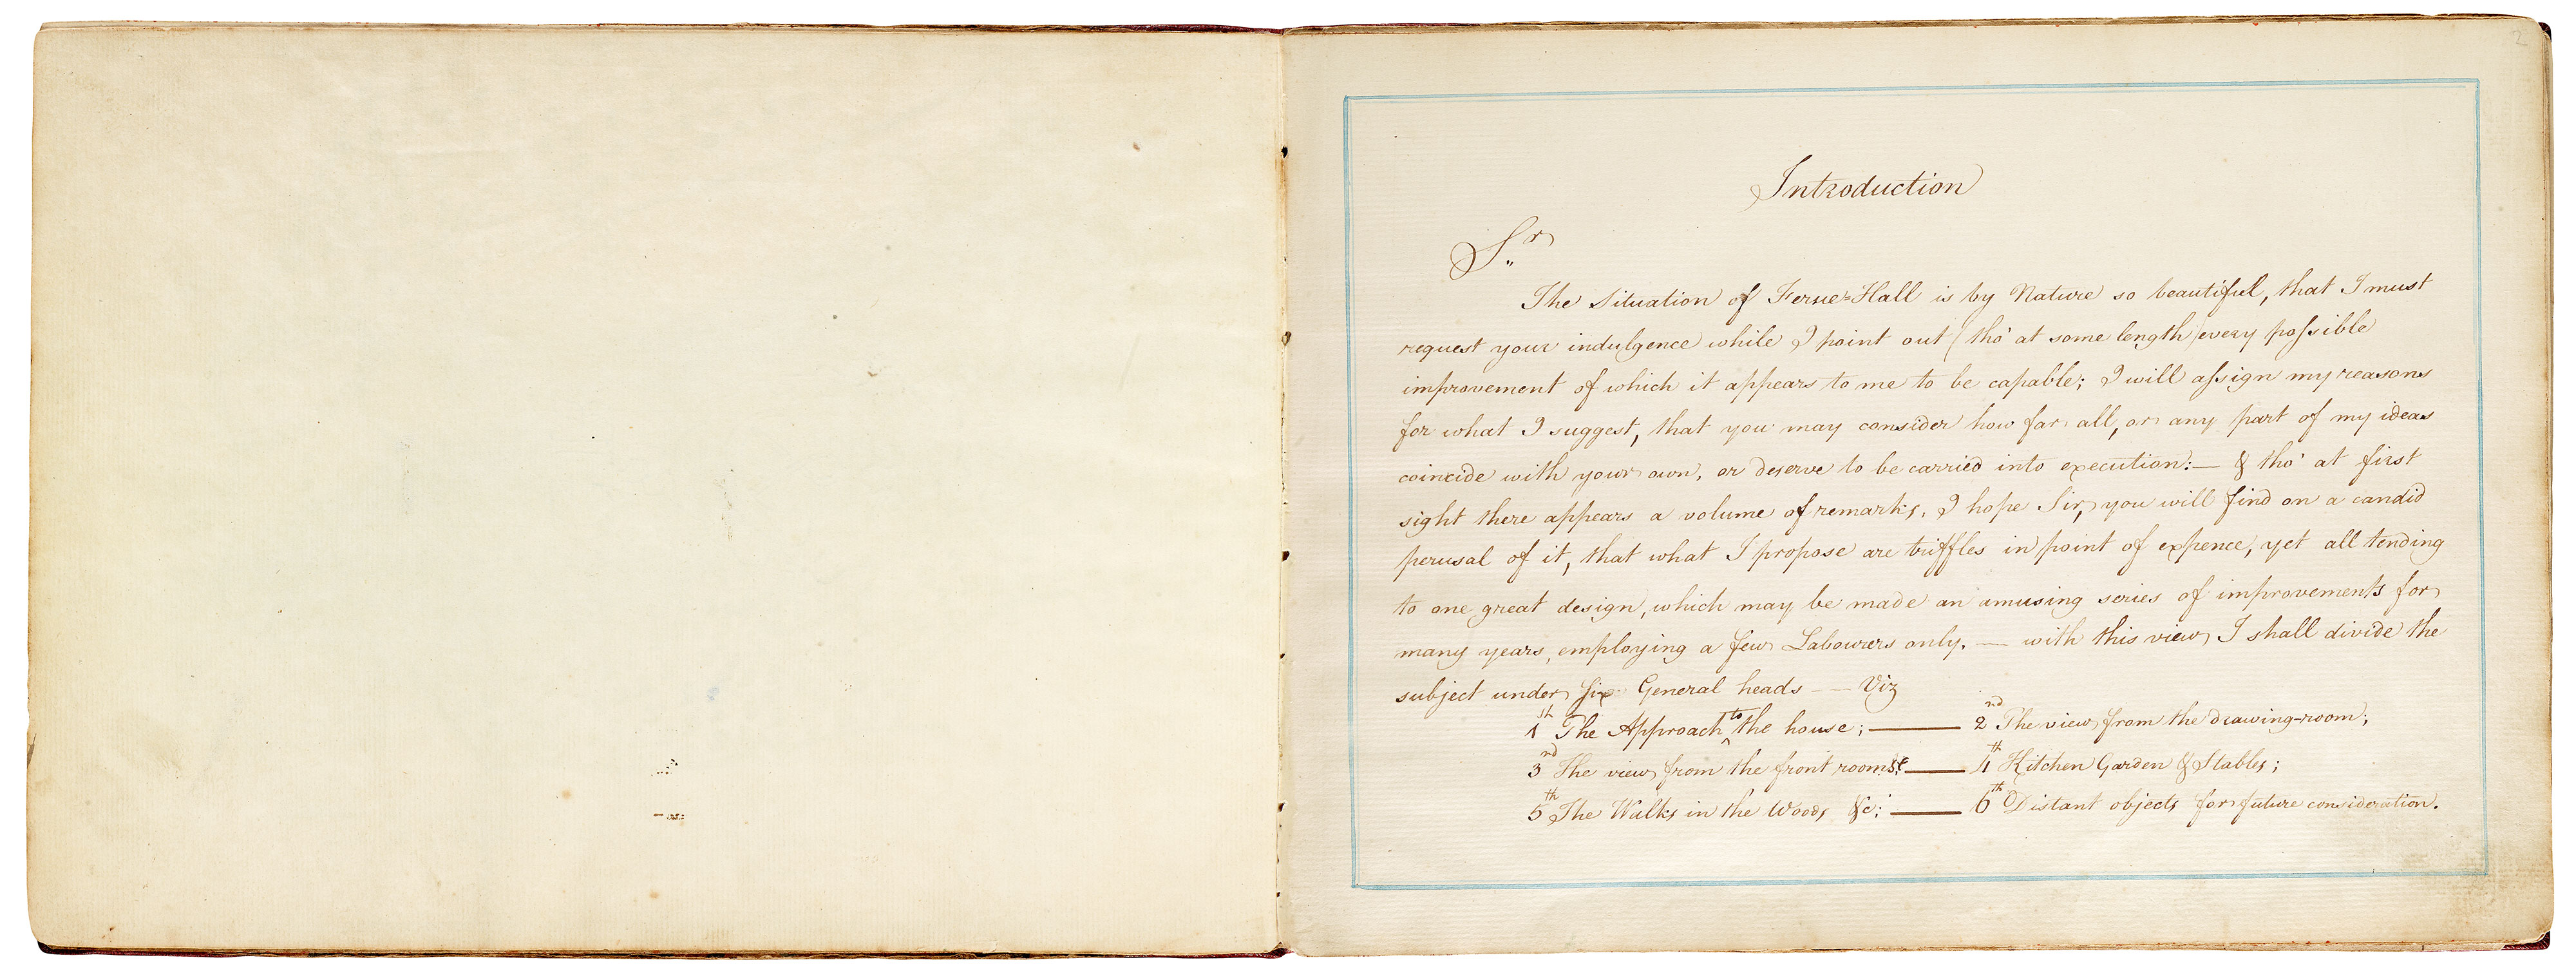 2
Introduction
Sr
The Situation of Ferne=Hall is by Nature so beautiful, that I must
request your indulgence while I point out (tho' at some length) every possible
improvement of which it appears to me to be capable; I will assign my reasons
for what I suggest, that you may consider how far all, or any part of my ideas
coincide with your own, or deserve to be carried into execution:— & tho' at first
sight there appears a volume of remarks, I hope Sir, you will find on a candid
perusal of it, that what I propose are triffles in point of expence, yet all tending
to one great design, which may be made an amusing series of improvements for
many years, employing a few Labourers only. — with this view I shall divide the
subject under six General heads — Viz
1st The Approach to the house; — 2nd The view from the drawing-room;
3rd The view from the front rooms; — 4th Kitchen Garden & Stables;
5th The Walks in the Woods &c; — 6th Distant objects for future consideration.